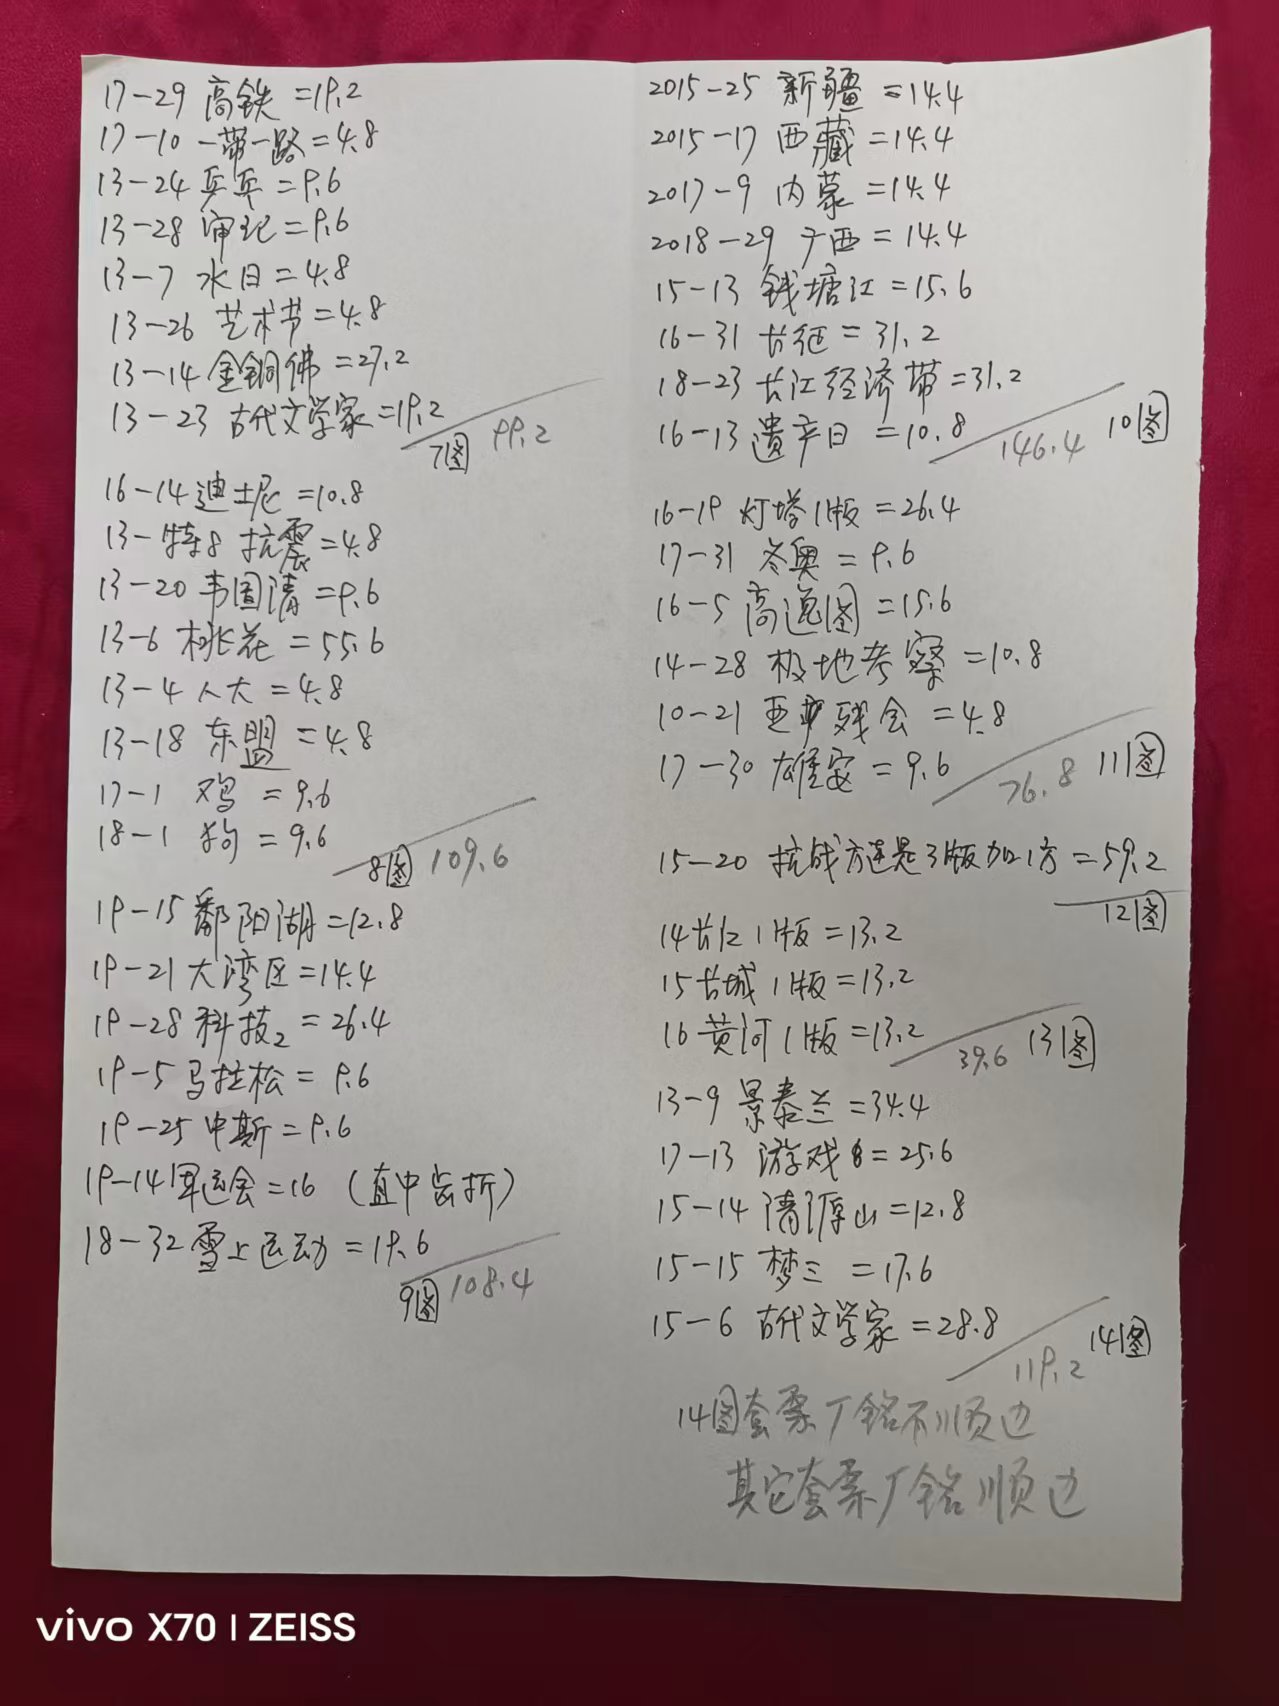 17-29 高铁 =19.2
17-10 一带一路=4.8
13-24 乒乓 =9.6
13-28 审纪=9.6
13-7 水日=4.8
13-26 艺术节=4.8
13-14 金铜佛 =27.2
13-23 古代文学家=19.2
7图 99.2
16-14 迪士尼=10.8
13-特8 抗震=4.8
13-20 韦国清 =9.6
13-6 桃花 =55.6
13-4 人大 =4.8
13-18 东盟 =4.8
17-1 鸡 =9.6
18-1 狗 =9.6
8图 109.6
19-15 鄱阳湖=12.8
19-21 大湾区=14.4
19-28 科技2 =26.4
19-5 马拉松= 9.6
19-25 中斯=9.6
19-14 军运会=16 (直中尝折)
18-32 雪上运动 =19.6
9图 108.4
2015-25 新疆 =14.4
2015-17 西藏 =14.4
2017-9 内蒙 =14.4
2018-29 广西 = 14.4
15-13 钱塘江 =15.6
16-31 长征 = 31.2
18-23 长江经济带=31.2
16-13 遗产日 =10.8
146.4 10图
16-19 灯塔1版=26.4
17-31 冬奥 = 9.6
16-5 高逸图 =15.6
14-28 极地考察 =10.8
10-21 亚残会 =4.8
17-30 雄安 = 9.6
76.8 11图
15-20 抗战方连是3版加1方 =59.2
12图
14长江1版=13.2
15长城1版=13.2
16黄河1版=13.2
39.6 13图
13-9 景泰兰=34.4
17-13 游戏 8=25.6
15-14 清源山=12.8
15-15 梦三 =17.6
15-6 古代文学家=28.8
119.2 14图
14图套票厂铭不顺边
其它套票厂铭顺边
vivo X70 | ZEISS